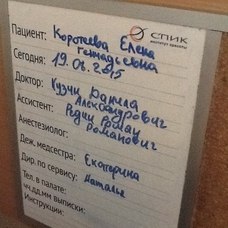 СПИК
институт красоты
Пациент: Коротеева Елена
Геннадьевна
Сегодня: 19.06.2015
Доктор: Кузин Данила
Александрович
Ассистент: Редчи Роман
Романович
Анестезиолог:
Деж. медсестра: Екатерина
Дир. по сервису: Наталья
Тел. в палате:
чч.дд.мм выписки:
Инструкции: